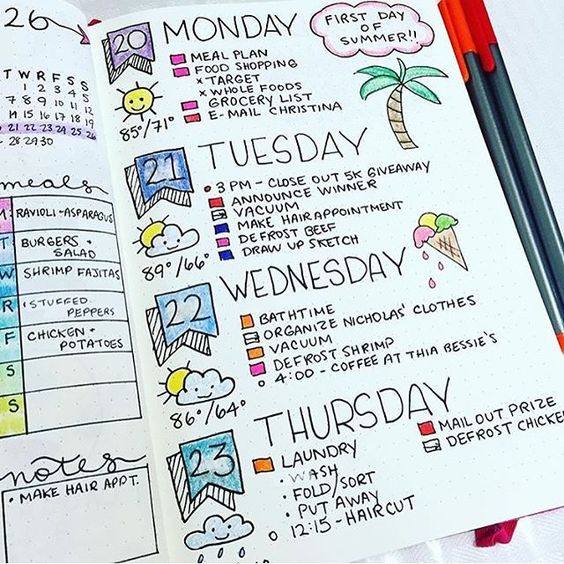 26
T W R F S S
2 3 4 5
7 8 9 10 11 12
14 15 16 17 18 19
21 22 23 24 25 26
28 29 30
meals
M: RAVIOLI-ASPARAGUS
T BURGERS + SALAD
W SHRIMP FAJITAS
R STUFFED PEPPERS
F CHICKEN + POTATOES
S
S
notes
• MAKE HAIR APPT.
20 MONDAY
FIRST DAY
OF
SUMMER!!
MEAL PLAN
FOOD SHOPPING
x TARGET
x WHOLE FOODS
GROCERY LIST
E-MAIL CHRISTINA
85°/71°
21 TUESDAY
3 PM - CLOSE OUT 5K GIVEAWAY
ANNOUNCE WINNER
VACUUM
MAKE HAIR APPOINTMENT
DEFROST BEEF
DRAW UP SKETCH
89°/66°
22 WEDNESDAY
BATHTIME
ORGANIZE NICHOLAS' CLOTHES
VACUUM
DEFROST SHRIMP
4:00 - COFFEE AT THIA BESSIE'S
86°/64°
23 THURSDAY
LAUNDRY
• WASH
• FOLD/SORT
• PUT AWAY
12:15 - HAIRCUT
MAIL OUT PRIZE
DEFROST